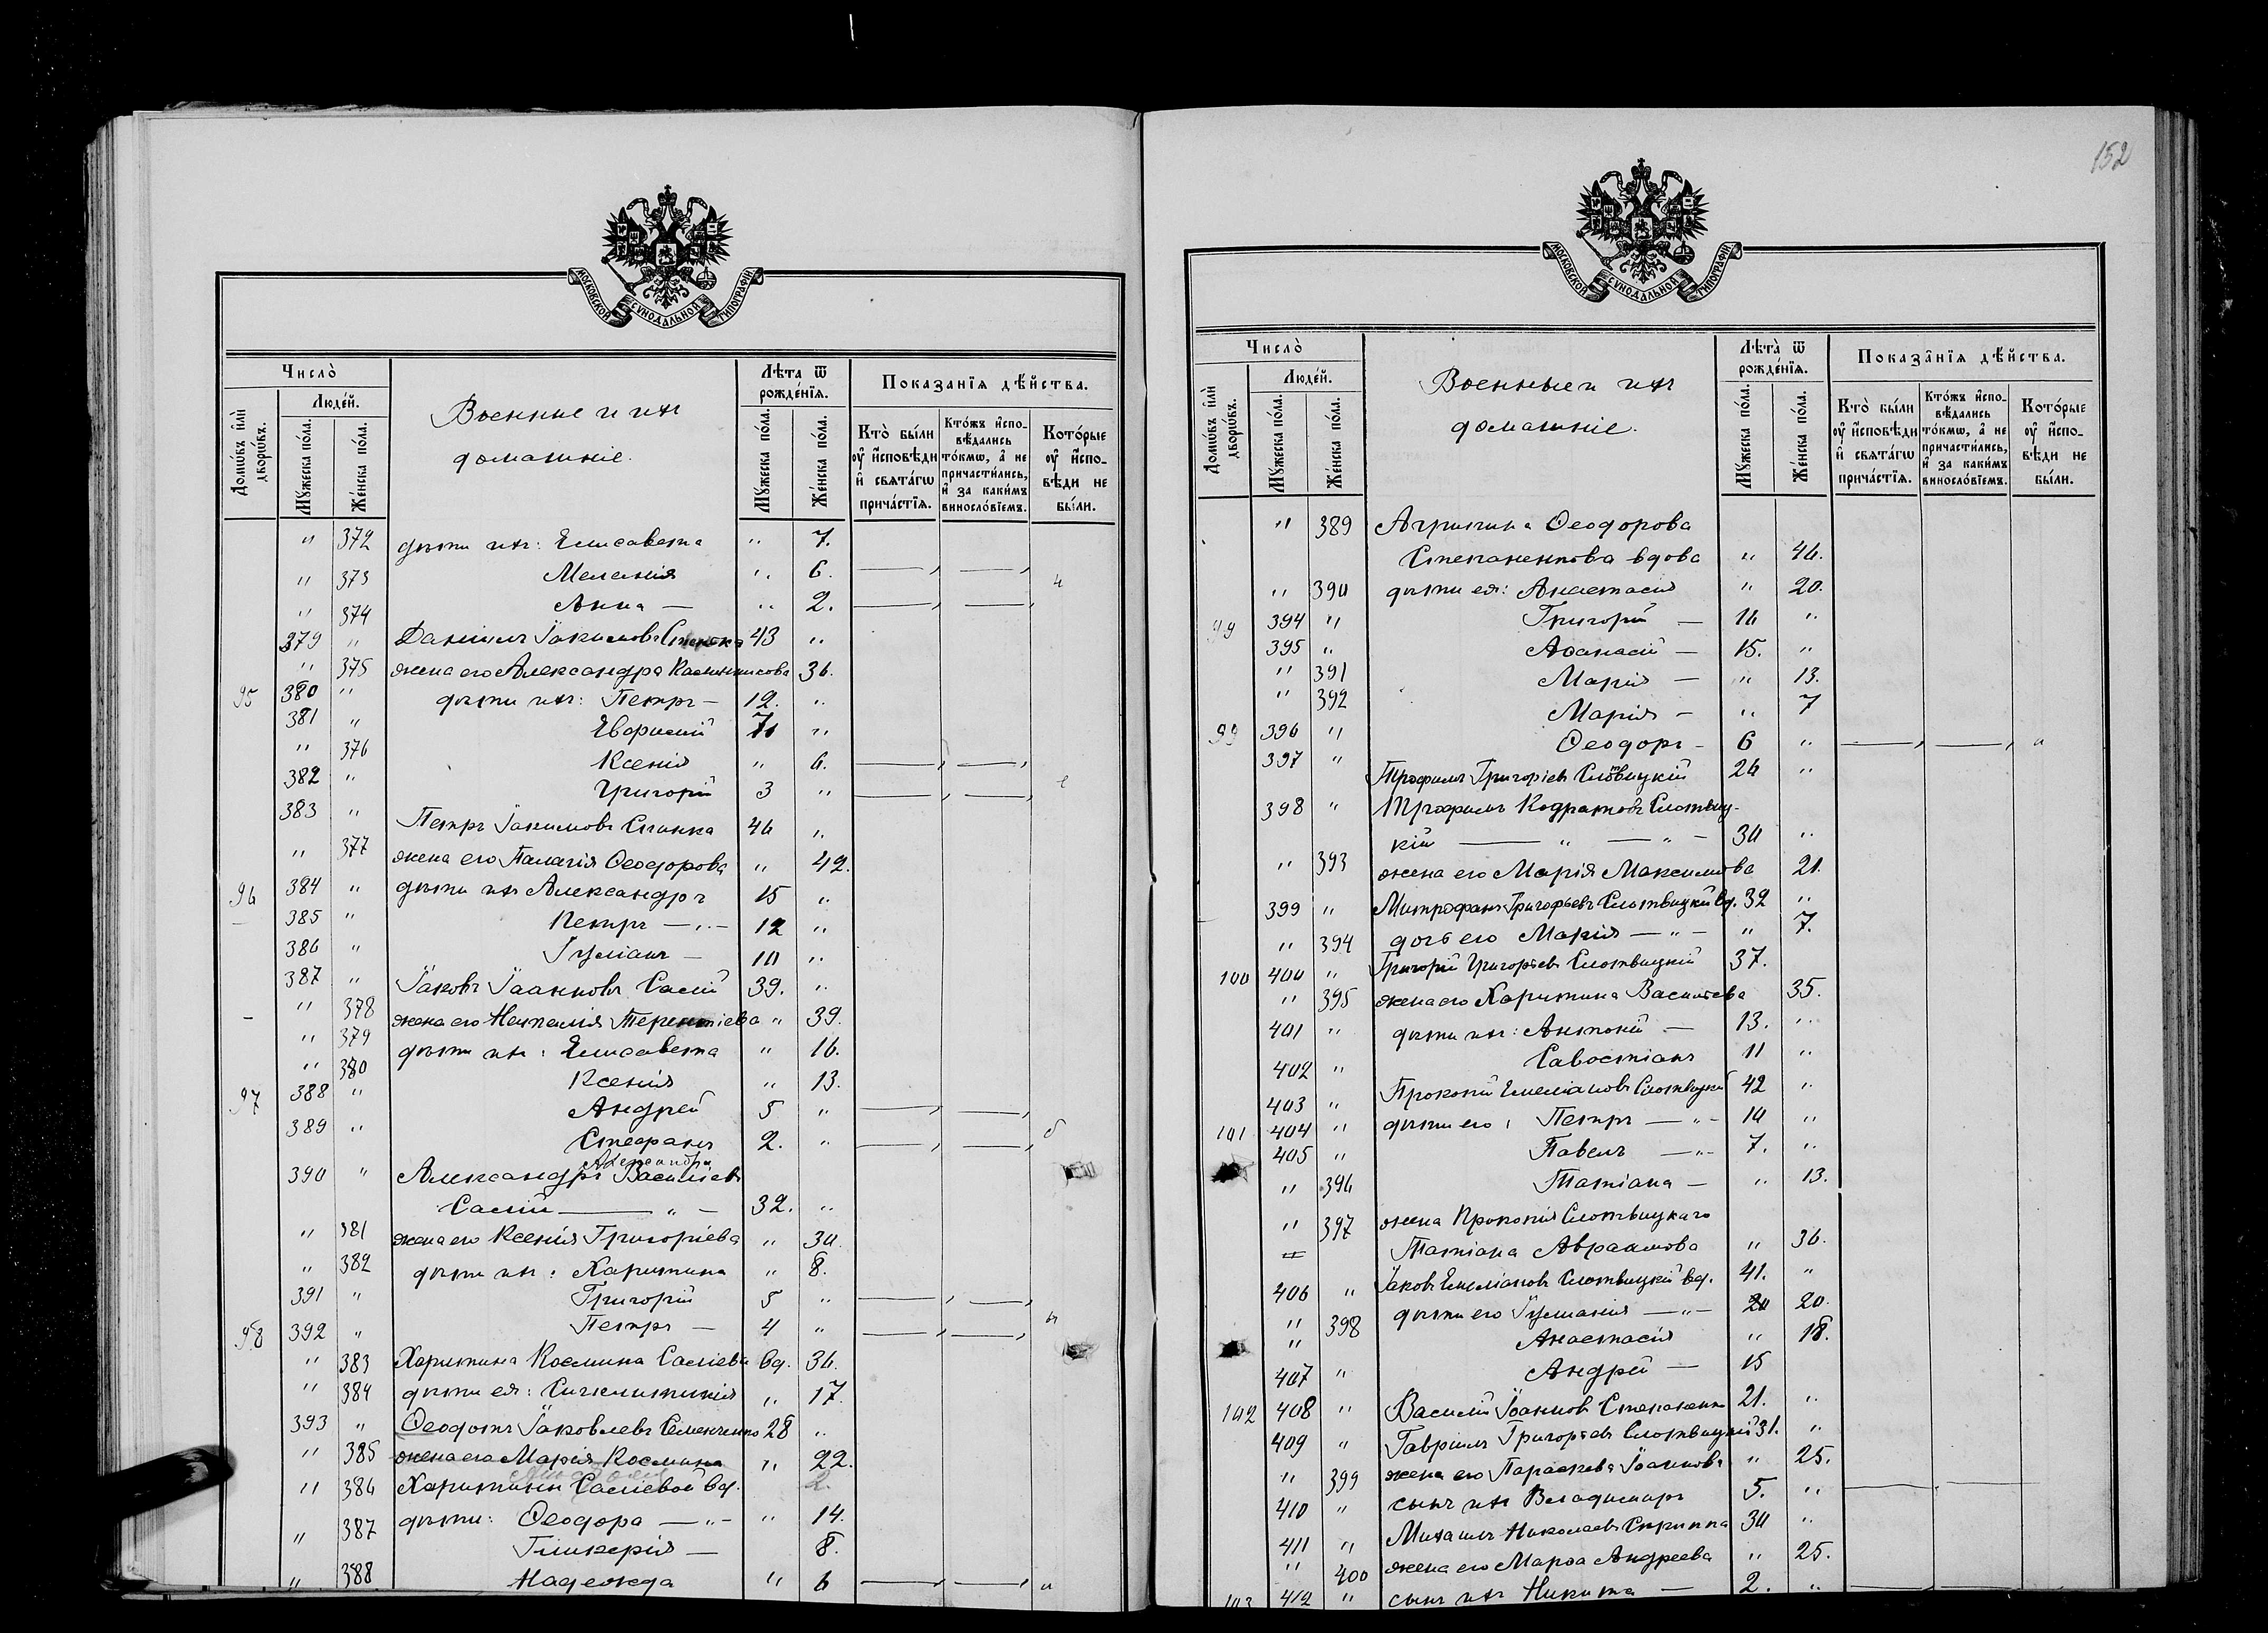 152
МОСКОВСКОЙ СѴНОДАЛЬНОЙ ТИПОГРАФІИ
Число̀
Людей.
Домѡвъ и҆лѝ дворѡвъ.
Мꙋжеска по́ла.
Же́нска по́ла.
Военные и ихъ
домашніе.
Лѣта ѿ рожде́нїѧ.
Мꙋжеска по́ла.
Же́нска по́ла.
Показа́нїѧ дѣ́йства.
Кто̀ бы́ли оу҆ и҆сповѣди и҆ свѧта́гѡ прича́стїѧ.
Кто́жъ и҆спо-вѣдались то́кмѡ, а҆ не причасти́лись, и҆ за каки́мъ винослові́емъ.
Кото́рые оу҆ и҆спо-вѣди не бы́ли.
" 372 дѣти ихъ: Елисавета " 7.
" 373 Меланія " 6.
" 374 Анна — " 2.
379 " Даніилъ Іакимовъ 43 "
" 375 жена его Александра 36.
95 380 " дѣти ихъ: Петръ — 12. "
381 " Евфимій 7 "
" 376 Ксенія " 6.
382 " Григорій 3 "
383 " Петръ Іакимовъ 46 "
" 377 жена его Палагія Ѳеодорова " 42.
96 384 " дѣти ихъ Александръ 15 "
385 " Петръ — " — 12 "
386 " Іуліанъ — 10 "
387 " Іаковъ Іоанновъ Салій 39. "
" 378 жена его Наталія Терентіева " 39.
" 379 дѣти ихъ: Елисавета " 16.
" 380 Ксенія " 13.
97 388 " Андрей 5 "
389 " Стефанъ 2. "
390 " Александръ Василіевъ
Салій — " — 32. "
" 381 жена его Ксенія Григоріева " 30.
" 382 дѣти ихъ: Харитина " 8.
391 " Григорій 5 "
98 392 " Петръ — 4 "
" 383 Харитина Космина Саліева вд. 36.
" 384 дѣти ея: Синклитикія " 17.
393 " Ѳеодотъ Іаковлевъ Семенченко 28 "
" 385 жена его Марія Космина " 22.
" 386 Харитины Саліевой вд. 2.
" 387 дѣти: Ѳеодора — " — " 14.
Гликерія — 8.
" 388 Надежда " 6
МОСКОВСКОЙ СѴНОДАЛЬНОЙ ТИПОГРАФІИ
Число̀
Людей.
Домѡвъ и҆лѝ дворѡвъ.
Мꙋжеска по́ла.
Же́нска по́ла.
Военные и ихъ
домашніе.
Лѣта̀ ѿ рожде́нїѧ.
Мꙋжеска по́ла.
Же́нска по́ла.
Показа́нїѧ дѣ́йства.
Кто̀ бы́ли оу҆ и҆сповѣди и҆ свѧта́гѡ прича́стїѧ.
Кто́жъ и҆спо-вѣдались то́кмѡ, а҆ не причасти́лись, и҆ за каки́мъ винослові́емъ.
Кото́рые оу҆ и҆спо-вѣди не бы́ли.
" 389 Агрипина Ѳеодорова
Степаненкова вдова " 46.
" 390 дѣти ея: Анастасія " 20.
99 394 " Григорій — 16 "
395 " Аѳанасій — 15. "
" 391 Марія — " 13.
" 392 Марія — " 7
99 396 " Ѳеодоръ — 6 "
397 " Трофимъ Григоріевъ Слотвицкій 26 "
398 " Трофимъ Кодратовъ Слотвиц-
кій — " — " — 30 "
" 393 жена его Марія Максимова 21.
399 " Митрофанъ Григорьевъ Слотвицкій вд. 32 "
" 394 дочь его Марія — " — " 7.
100 400 " Григорій Григорьевъ Слотвицкій 37.
" 395 жена его Харитина Васильева 35.
401 " дѣти ихъ: Антоній — 13. "
402 " Савостіанъ 11 "
403 " Прокопій Емеліановъ Слотвицкій 42 "
101 404 " дѣти его: Петръ — " — 10 "
405 " Павелъ — " — 7. "
" 396 Татіана — " 13.
" 397 жена Прокопія Слотвицкаго
Татіана Авраамова " 36.
406 " Іаковъ Емеліановъ Слотвицкій вд. 41. "
" 398 дѣти его Іуліанія — " — 20 20.
" Анастасія " 18.
407 " Андрей — 15
102 408 " Василій Іоанновъ Степаненко 21. "
409 " Гавріилъ Григорьевъ Слотвицкій 31. "
" 399 жена его Параскева Іоаннова " 25.
410 " сынъ ихъ Владимиръ 5. "
411 " Михаилъ Николаевъ Скрипка 30 "
" 400 жена его Марѳа Андреева " 25.
103 412 " сынъ ихъ Никита — 2. "